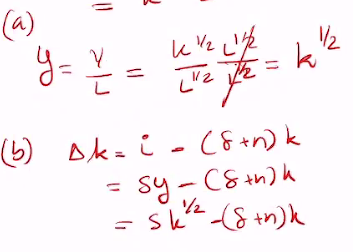 = k
(a)
y = Y/L = K^1/2 L^1/2 / L^1/2 L^1/2 = k^1/2
(b) Δk = i - (δ+n)k
= sy - (δ+n)k
= sk^1/2 - (δ+n)k